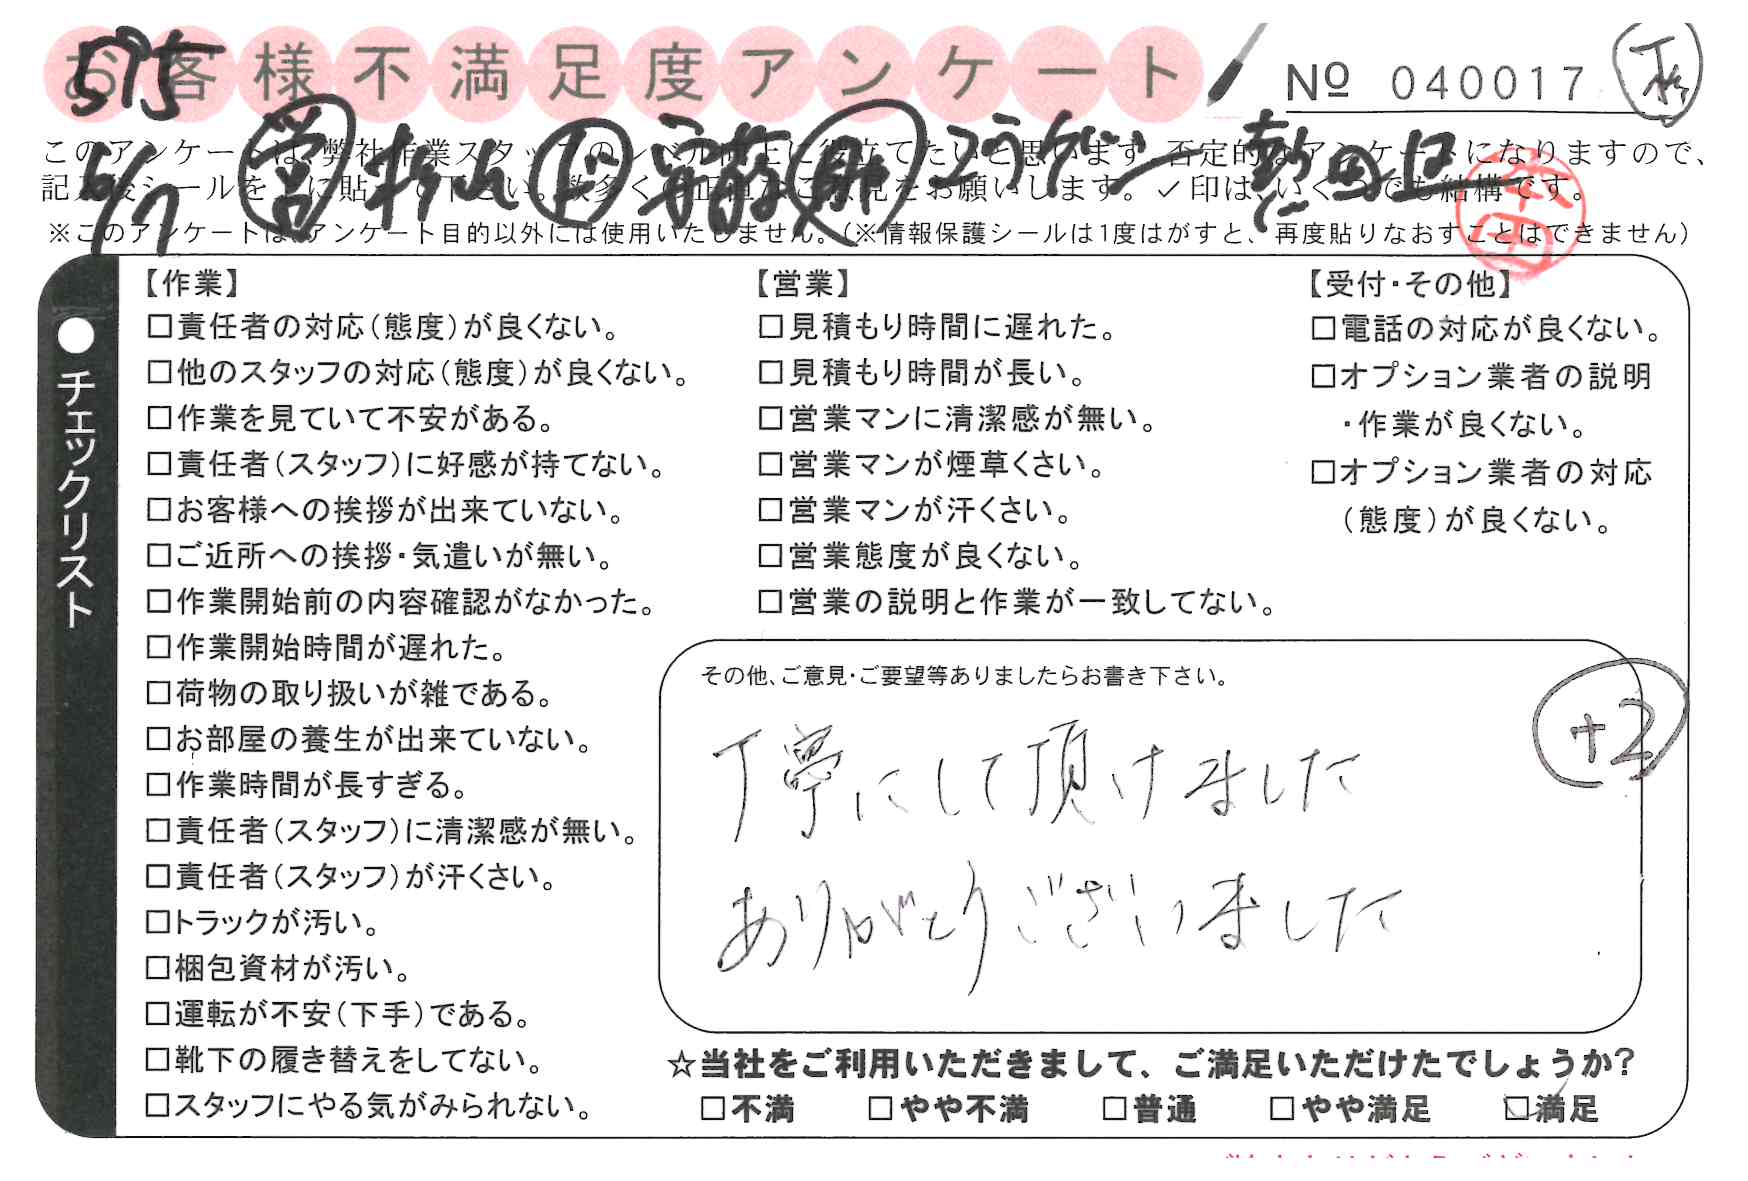 お客様不満足度アンケート
№ 040017
6/7
このアンケートは、弊社作業スタッフのレベル向上に役立てたいと思います。否定的なアンケートになりますので、
記入後シールを上に貼って下さい。数多くの正直なご意見をお願いします。✓印は、いくつでも結構です。
※このアンケートは、アンケート目的以外には使用いたしません。(※情報保護シールは1度はがすと、再度貼りなおすことはできません)
●チェックリスト
【作業】
□責任者の対応(態度)が良くない。
□他のスタッフの対応(態度)が良くない。
□作業を見ていて不安がある。
□責任者(スタッフ)に好感が持てない。
□お客様への挨拶が出来ていない。
□ご近所への挨拶・気遣いが無い。
□作業開始前の内容確認がなかった。
□作業開始時間が遅れた。
□荷物の取り扱いが雑である。
□お部屋の養生が出来ていない。
□作業時間が長すぎる。
□責任者(スタッフ)に清潔感が無い。
□責任者(スタッフ)が汗くさい。
□トラックが汚い。
□梱包資材が汚い。
□運転が不安(下手)である。
□靴下の履き替えをしてない。
□スタッフにやる気がみられない。
【営業】
□見積もり時間に遅れた。
□見積もり時間が長い。
□営業マンに清潔感が無い。
□営業マンが煙草くさい。
□営業マンが汗くさい。
□営業態度が良くない。
□営業の説明と作業が一致してない。
【受付・その他】
□電話の対応が良くない。
□オプション業者の説明
・作業が良くない。
□オプション業者の対応
(態度)が良くない。
その他、ご意見・ご要望等ありましたらお書き下さい。
+2
丁寧にして頂けました
ありがとうございました
☆当社をご利用いただきまして、ご満足いただけたでしょうか?
□不満 □やや不満 □普通 □やや満足 □満足